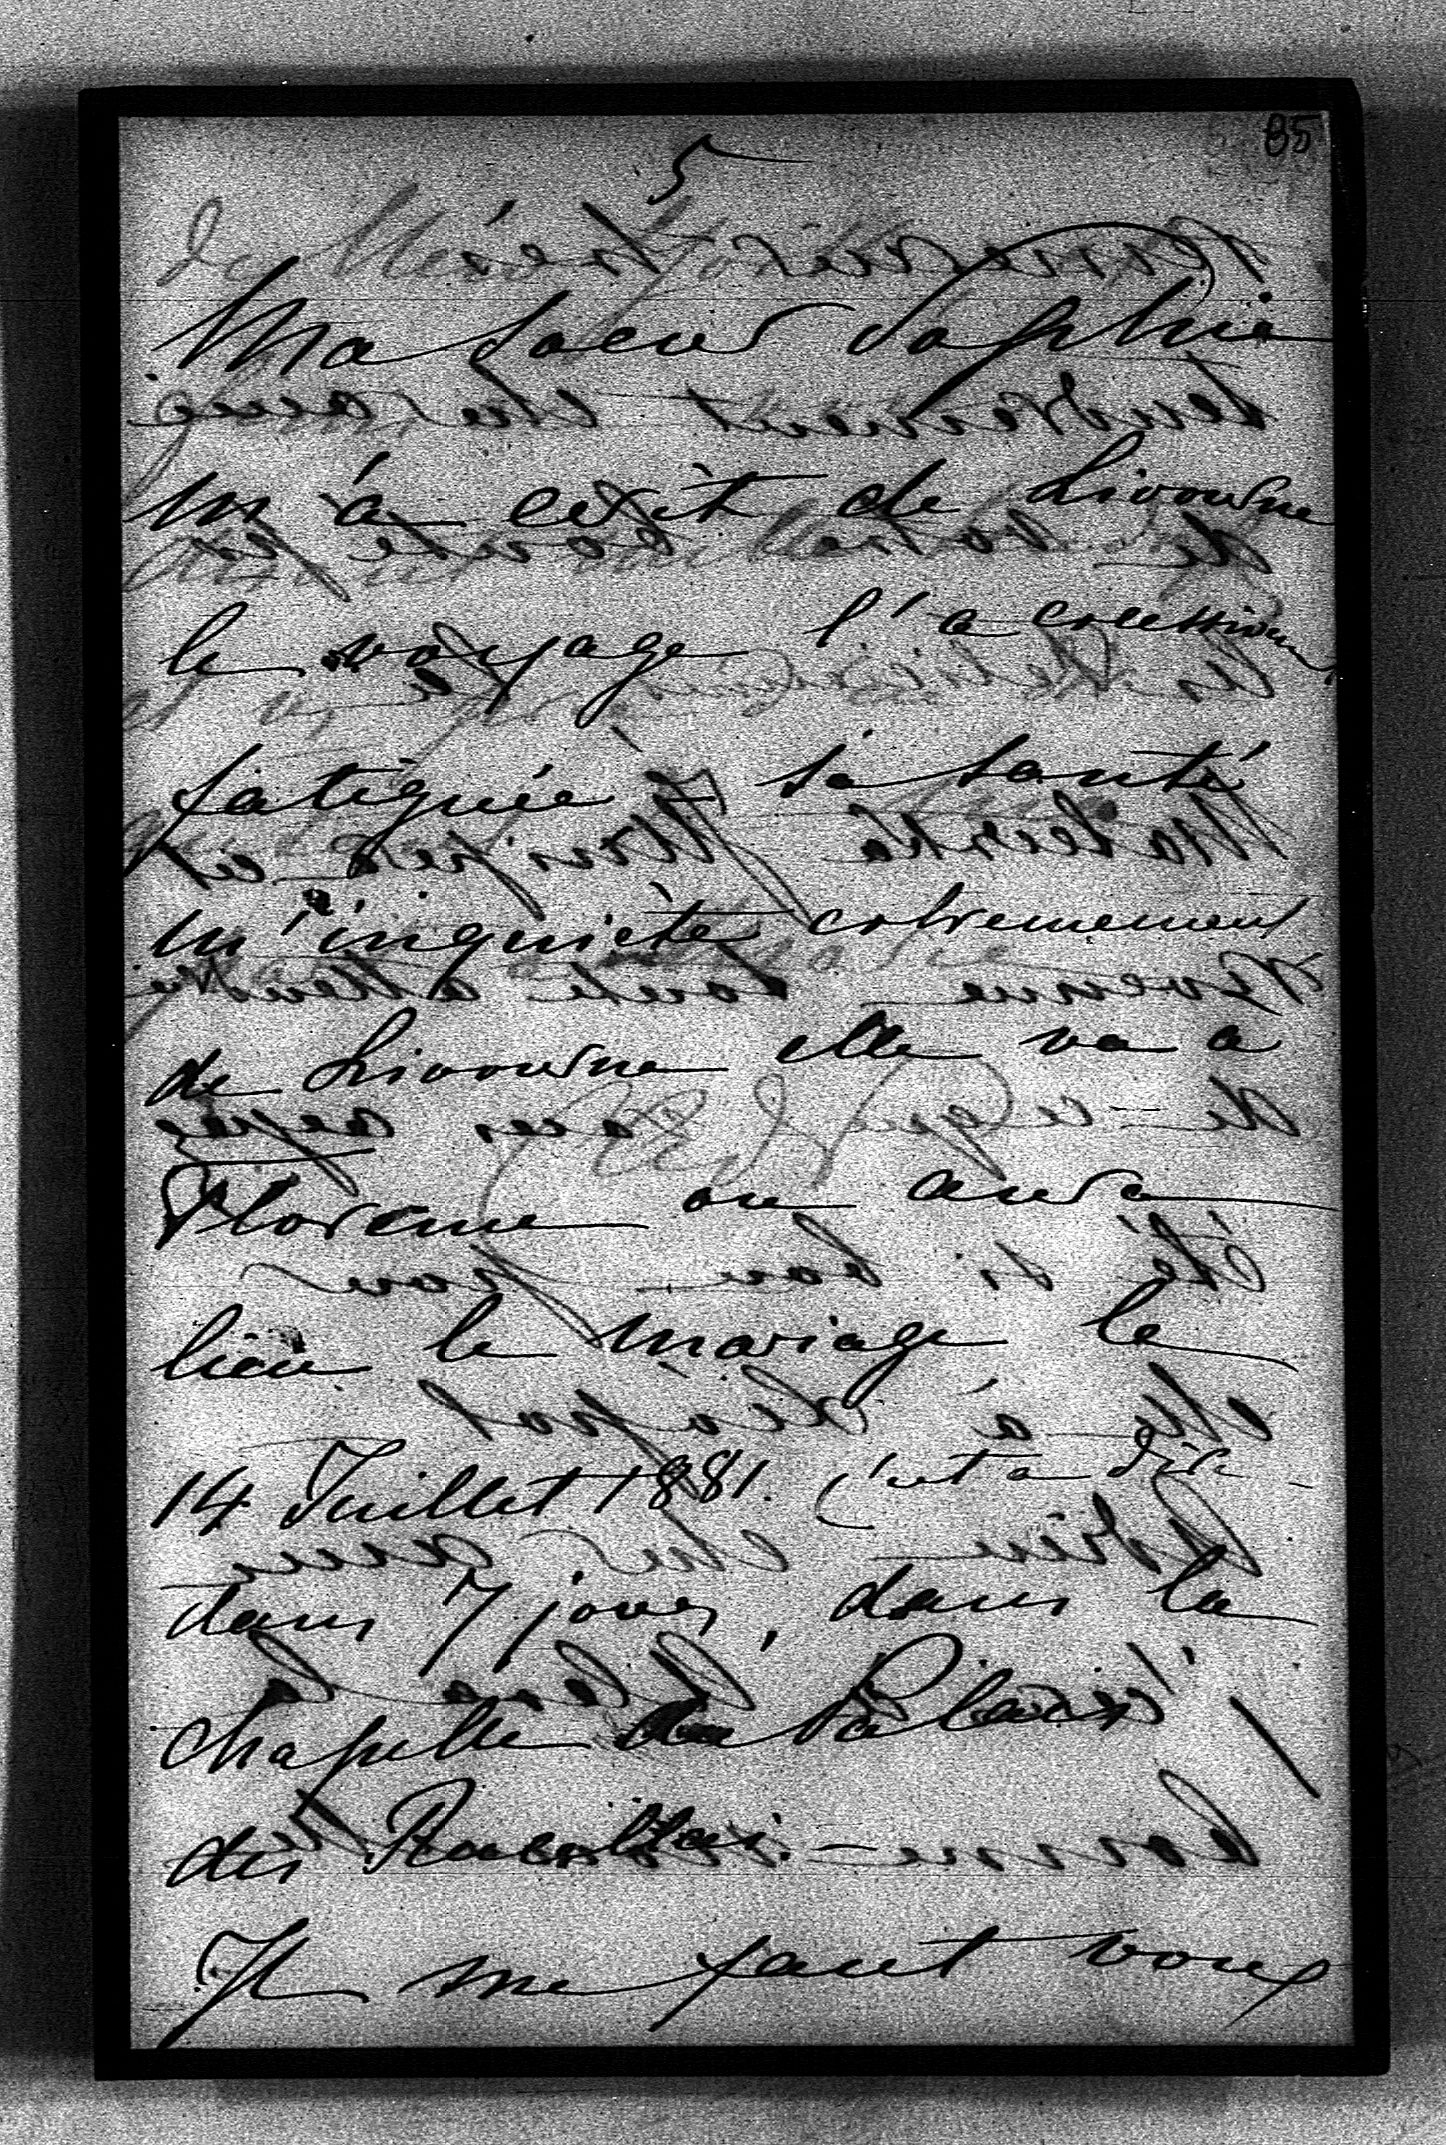 85
5
Ma soeur Sophie
m'a ecrit de Livourne
le voyage l'a excessivem
fatiguée – sa santé
m'inquiète extremement
de Livourne elle va a
Florence ou aura
lieu le mariage le
14 Juillet 1881. c'est a dire
dans 7 jours, dans la
chapelle du Palais
des
Il me faut vous